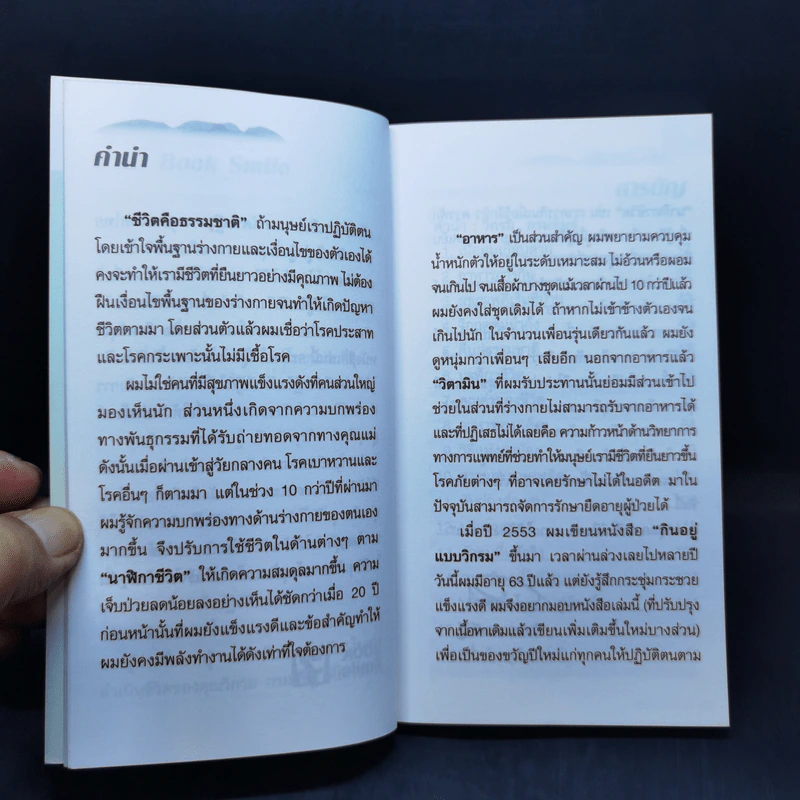 คำนำ
“ชีวิตคือธรรมชาติ” ถ้ามนุษย์เราปฏิบัติตน
โดยเข้าใจพื้นฐานร่างกายและเงื่อนไขของตัวเองได้
คงจะทำให้เรามีชีวิตที่ยืนยาวอย่างมีคุณภาพ ไม่ต้อง
ฝืนเงื่อนไขพื้นฐานของร่างกายจนทำให้เกิดปัญหา
ชีวิตตามมา โดยส่วนตัวแล้วผมเชื่อว่าโรคประสาท
และโรคกระเพาะนั้นไม่มีเชื้อโรค
ผมไม่ใช่คนที่มีสุขภาพแข็งแรงดังที่คนส่วนใหญ่
มองเห็นนัก ส่วนหนึ่งเกิดจากความบกพร่อง
ทางพันธุกรรมที่ได้รับถ่ายทอดจากทางคุณแม่
ดังนั้นเมื่อผ่านเข้าสู่วัยกลางคน โรคเบาหวานและ
โรคอื่นๆ ก็ตามมา แต่ในช่วง 10 กว่าปีที่ผ่านมา
ผมรู้จักความบกพร่องทางด้านร่างกายของตนเอง
มากขึ้น จึงปรับการใช้ชีวิตในด้านต่างๆ ตาม
“นาฬิกาชีวิต” ให้เกิดความสมดุลมากขึ้น ความ
เจ็บป่วยลดน้อยลงอย่างเห็นได้ชัดกว่าเมื่อ 20 ปี
ก่อนหน้านั้นที่ผมยังแข็งแรงดีและข้อสำคัญทำให้
ผมยังคงมีพลังทำงานได้ดังเท่าที่ใจต้องการ
“อาหาร” เป็นส่วนสำคัญ ผมพยายามควบคุม
น้ำหนักตัวให้อยู่ในระดับเหมาะสม ไม่อ้วนหรือผอม
จนเกินไป จนเสื้อผ้าบางชุดแม้เวลาผ่านไป 10 กว่าปีแล้ว
ผมยังคงใส่ชุดเดิมได้ ถ้าหากไม่เข้าข้างตัวเองจน
เกินไปนัก ในจำนวนเพื่อนรุ่นเดียวกันแล้ว ผมยัง
ดูหนุ่มกว่าเพื่อนๆ เสียอีก นอกจากอาหารแล้ว
“วิตามิน” ที่ผมรับประทานนั้นย่อมมีส่วนเข้าไป
ช่วยในส่วนที่ร่างกายไม่สามารถรับจากอาหารได้
และที่ปฏิเสธไม่ได้เลยคือ ความก้าวหน้าด้านวิทยาการ
ทางการแพทย์ที่ช่วยทำให้มนุษย์เรามีชีวิตที่ยืนยาวขึ้น
โรคภัยต่างๆ ที่อาจเคยรักษาไม่ได้ในอดีต มาใน
ปัจจุบันสามารถจัดการรักษายืดอายุผู้ป่วยได้
เมื่อปี 2553 ผมเขียนหนังสือ “กินอยู่
แบบวิกรม” ขึ้นมา เวลาผ่านล่วงเลยไปหลายปี
วันนี้ผมมีอายุ 63 ปีแล้ว แต่ยังรู้สึกกระชุ่มกระชวย
แข็งแรงดี ผมจึงอยากมอบหนังสือเล่มนี้ (ที่ปรับปรุง
จากเนื้อหาเดิมแล้วเขียนเพิ่มเติมขึ้นใหม่บางส่วน)
เพื่อเป็นของขวัญปีใหม่แก่ทุกคนให้ปฏิบัติตนตาม